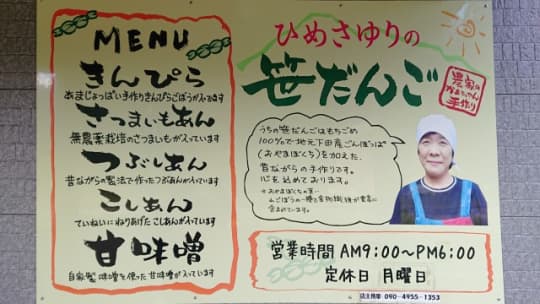 MENU
きんぴら
あまじょっぱい手作りきんぴらごぼうが入ってます
さつまいもあん
無農薬栽培のさつまいもが入っています
つぶしあん
昔ながらの製法で作ったつぶあんが入っています
こしあん
ていねいにねりあげた こしあんが入っています
甘味噌
自家製 味噌を使った甘味噌が入っています
ひめさゆりの
笹だんご
農家の
かあちゃん
手作り
うちの笹だんごはもちごめ
100%で地元下田産ごんぼっぱ
(おやまぼくち)を加えた、
昔ながらの手作りです。
心を込めております。
*おやまぼくちの葉…
山ごぼうの一種で食物繊維が豊富に
含まれています。
営業時間 AM9:00~PM6:00
定休日 月曜日
店主携帯 090-4955-1353